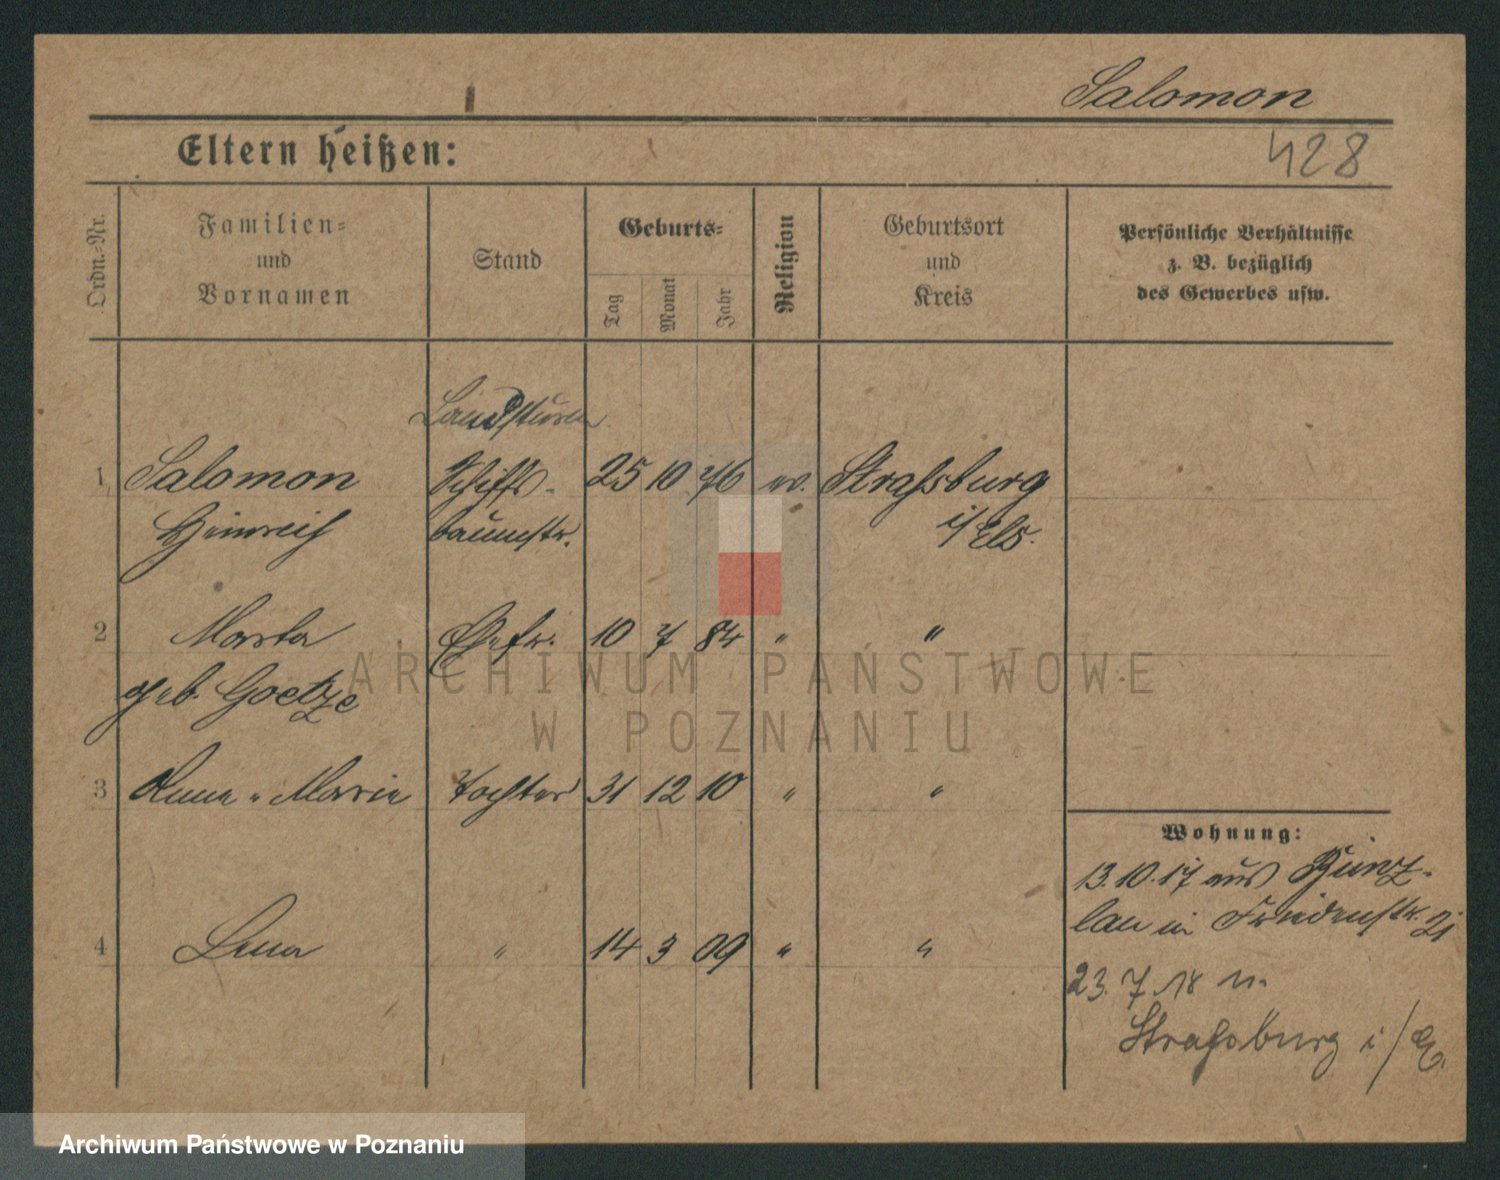 Salomon
428
Eltern heißen:
Ordn.-Nr.
Familien-
und
Vornamen
Stand
Geburts-
Tag
Monat
Jahr
Religion
Geburtsort
und
Kreis
Persönliche Verhältnisse
z. B. bezüglich
des Gewerbes usw.
Landsturm
1 Salomon Schiffs- 25 10 76 ev. Straßsburg
Heinrich baumstr. i/Els.
2 Marta Ehefr. 10 7 84 " "
geb. Goetze
3 Anna-Marie Tochter 31 12 10 " "
4 Lena " 14 3 09 " "
Wohnung:
13.10.17 aus Bunz-
lau in Friedenstr. 21
23.7.18 n.
Strassburg i/E.
ARCHIWUM PAŃSTWOWE
W POZNANIU
Archiwum Państwowe w Poznaniu